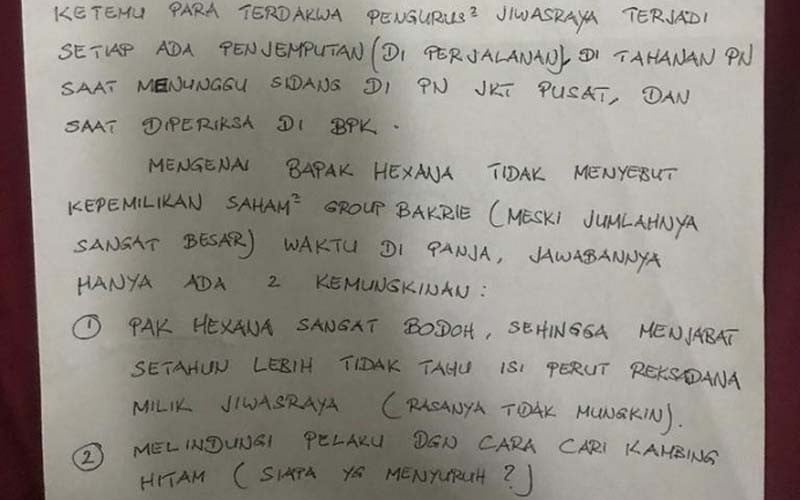 KETEMU PARA TERDAKWA PENGURUS² JIWASRAYA TERJADI
SETIAP ADA PENJEMPUTAN (DI PERJALANAN), DI TAHANAN PN
SAAT MENUNGGU SIDANG DI PN JKT PUSAT, DAN
SAAT DIPERIKSA DI BPK.
MENGENAI BAPAK HEXANA TIDAK MENYEBUT
KEPEMILIKAN SAHAM² GROUP BAKRIE (MESKI JUMLAHNYA
SANGAT BESAR) WAKTU DI PANJA, JAWABANNYA
HANYA ADA 2 KEMUNGKINAN:
① PAK HEXANA SANGAT BODOH, SEHINGGA MENJABAT
SETAHUN LEBIH TIDAK TAHU ISI PERUT REKSADANA
MILIK JIWASRAYA (RASANYA TIDAK MUNGKIN).
② MELINDUNGI PELAKU DGN CARA CARI KAMBING
HITAM (SIAPA YG MENYURUH?)